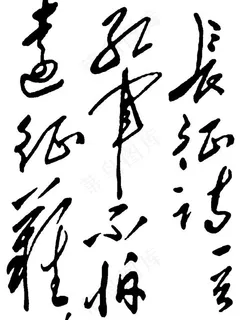 長征詩一首
红軍不怕
遠征難